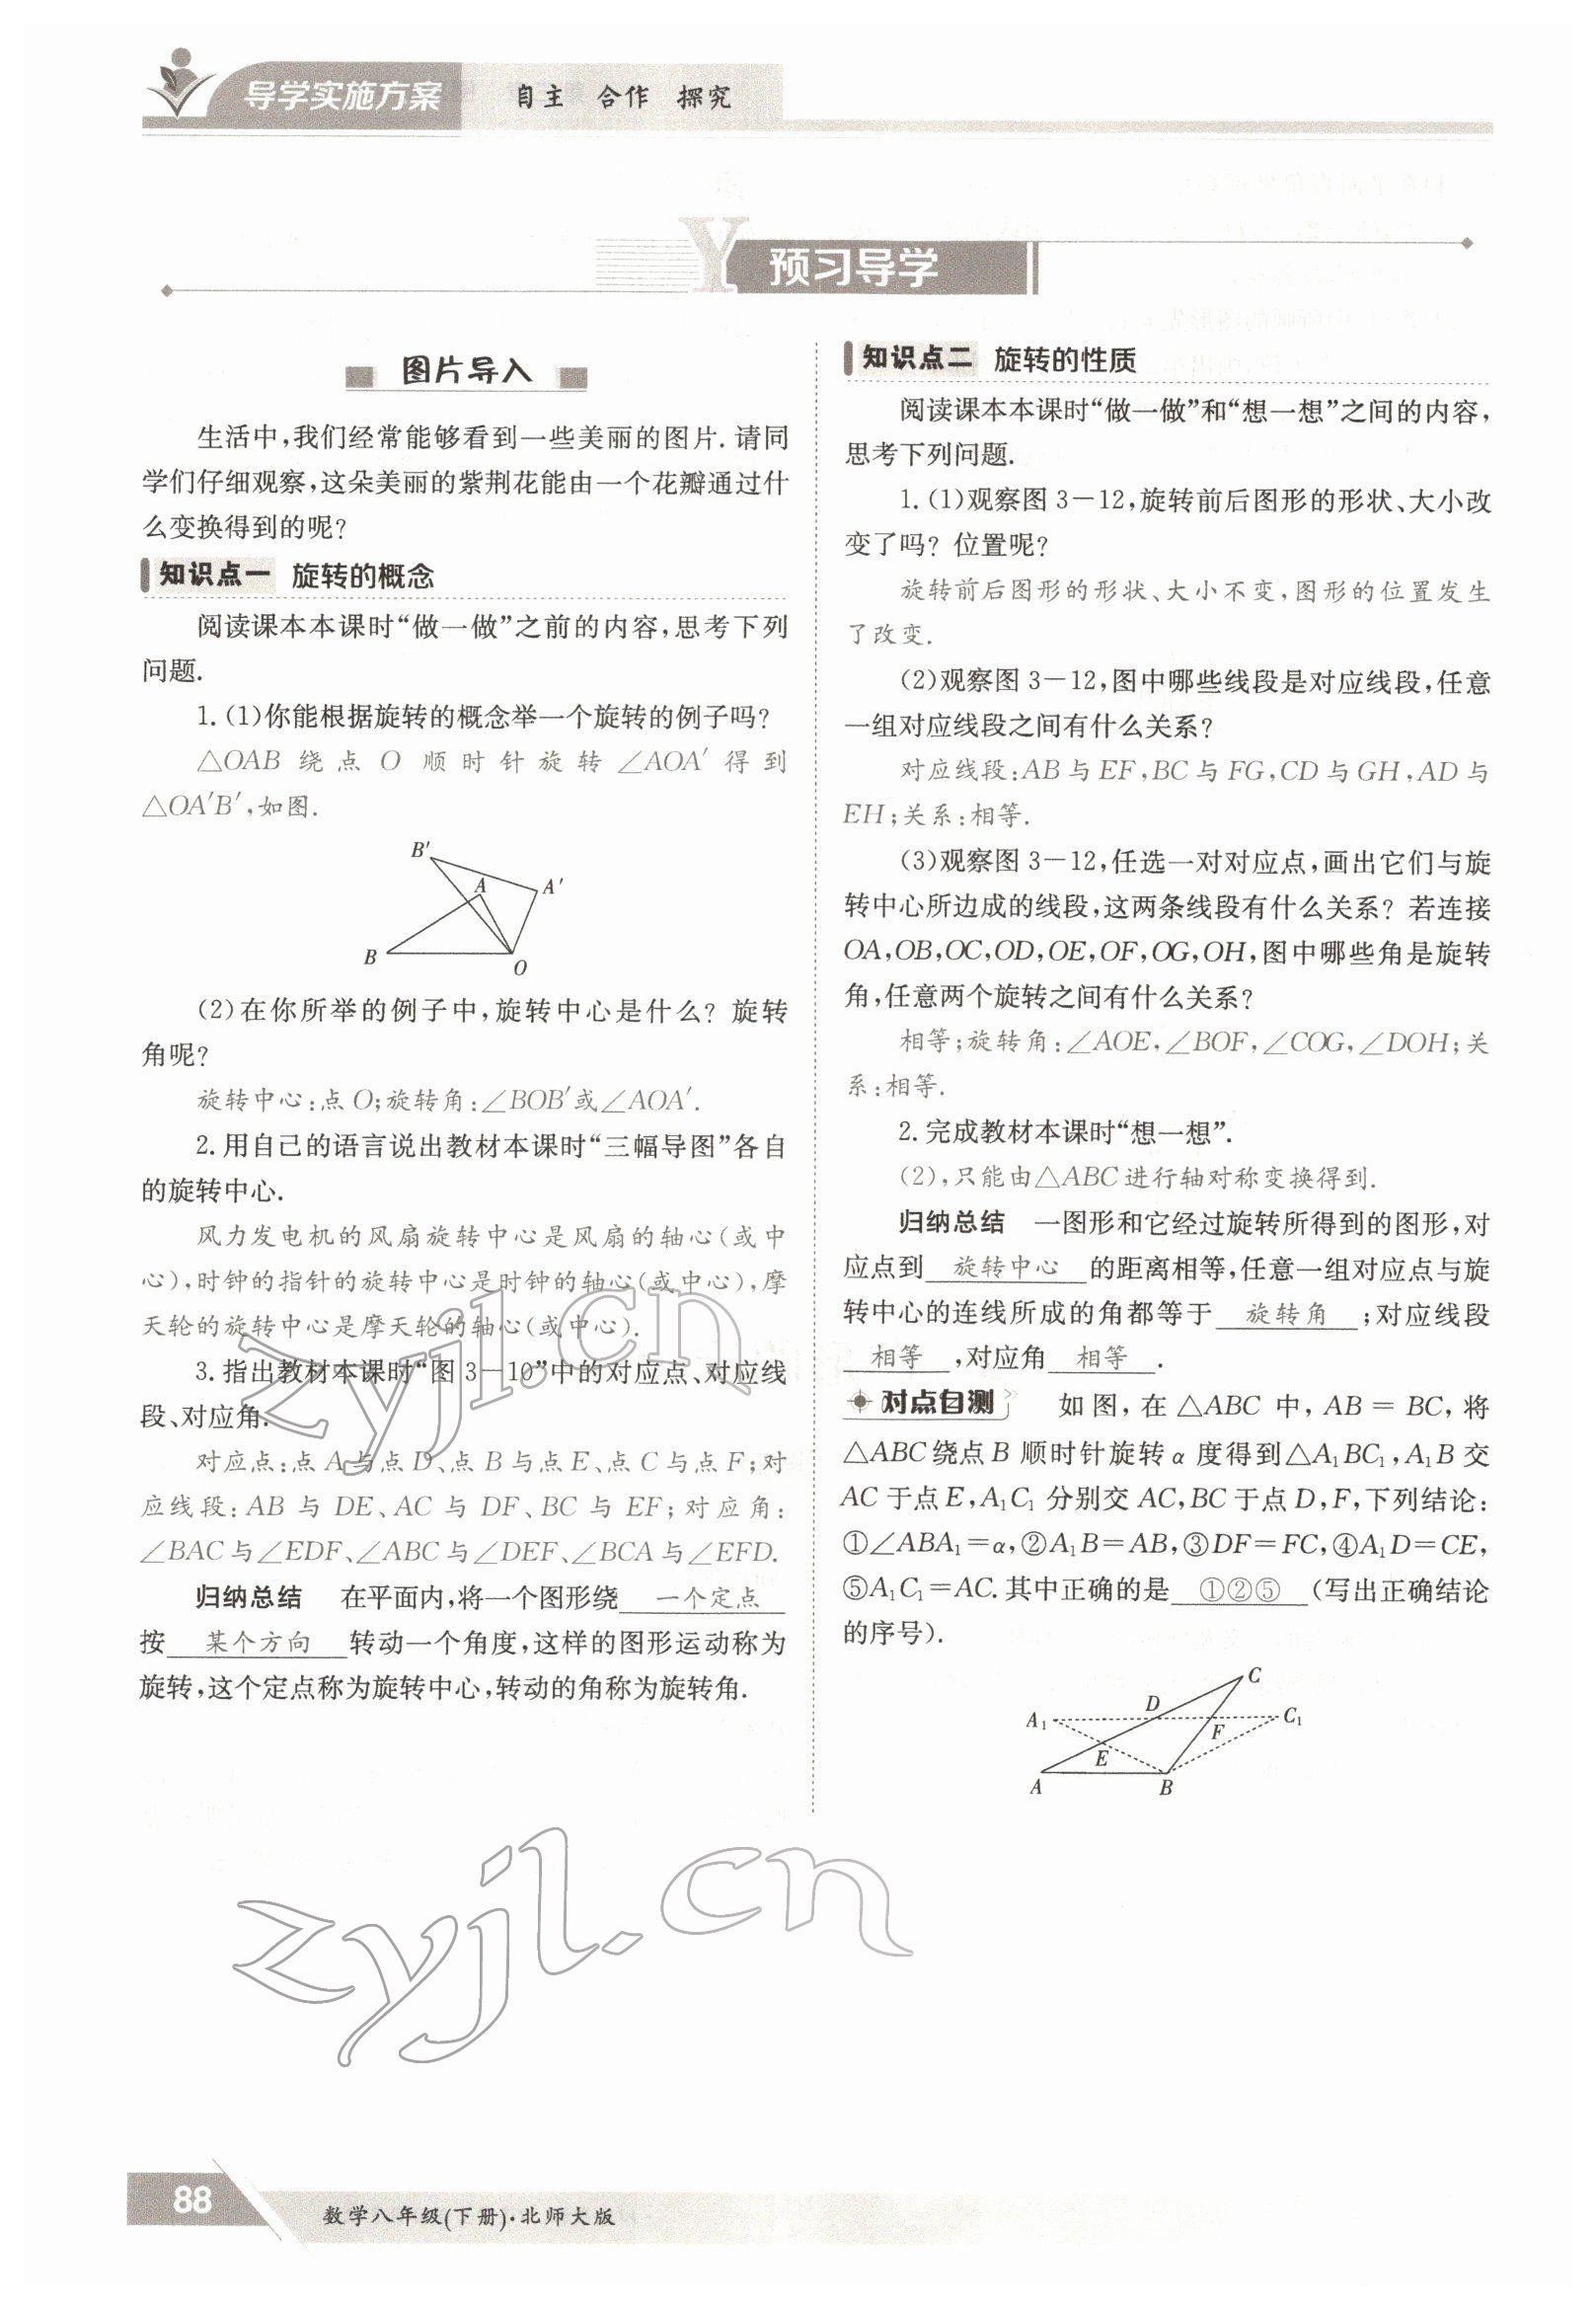 导学实施方案 自主 合作 探究
预习导学
图片导入
生活中,我们经常能够看到一些美丽的图片.请同
学们仔细观察,这朵美丽的紫荆花能由一个花瓣通过什
么变换得到的呢?
知识点一 旋转的概念
阅读课本本课时“做一做”之前的内容,思考下列
问题.
1.(1)你能根据旋转的概念举一个旋转的例子吗?
△OAB 绕点 O 顺时针旋转∠AOA′得到
△OA′B′,如图.
B′
A
A′
B
O
(2)在你所举的例子中,旋转中心是什么? 旋转
角呢?
旋转中心:点 O;旋转角:∠BOB′或∠AOA′.
2.用自己的语言说出教材本课时“三幅导图”各自
的旋转中心.
风力发电机的风扇旋转中心是风扇的轴心(或中
心),时钟的指针的旋转中心是时钟的轴心(或中心),摩
天轮的旋转中心是摩天轮的轴心(或中心).
3.指出教材本课时“图 3-10”中的对应点、对应线
段、对应角.
对应点:点 A 与点 D、点 B 与点 E、点 C 与点 F;对
应线段: AB 与 DE、AC 与 DF、BC 与 EF;对应角:
∠BAC 与∠EDF、∠ABC 与∠DEF、∠BCA 与∠EFD.
归纳总结 在平面内,将一个图形绕 一个定点
按 某个方向 转动一个角度,这样的图形运动称为
旋转,这个定点称为旋转中心,转动的角称为旋转角.
知识点二 旋转的性质
阅读课本本课时“做一做”和“想一想”之间的内容,
思考下列问题.
1.(1)观察图 3-12,旋转前后图形的形状、大小改
变了吗? 位置呢?
旋转前后图形的形状、大小不变,图形的位置发生
了改变.
(2)观察图 3-12,图中哪些线段是对应线段,任意
一组对应线段之间有什么关系?
对应线段:AB 与 EF,BC 与 FG,CD 与 GH,AD 与
EH;关系:相等.
(3)观察图 3-12,任选一对对应点,画出它们与旋
转中心所边成的线段,这两条线段有什么关系? 若连接
OA,OB,OC,OD,OE,OF,OG,OH,图中哪些角是旋转
角,任意两个旋转之间有什么关系?
相等;旋转角:∠AOE,∠BOF,∠COG,∠DOH;关
系:相等.
2.完成教材本课时“想一想”.
(2),只能由△ABC 进行轴对称变换得到.
归纳总结 一图形和它经过旋转所得到的图形,对
应点到 旋转中心 的距离相等,任意一组对应点与旋
转中心的连线所成的角都等于 旋转角 ;对应线段
相等 ,对应角 相等 .
对点自测 如图,在△ABC 中,AB = BC,将
△ABC 绕点 B 顺时针旋转 α 度得到△A₁BC₁,A₁B 交
AC 于点 E,A₁C₁ 分别交 AC,BC 于点 D,F,下列结论:
①∠ABA₁=α,②A₁B=AB,③DF=FC,④A₁D=CE,
⑤A₁C₁=AC.其中正确的是 ①②⑤ (写出正确结论
的序号).
C
D
A₁
C₁
F
E
A
B
zyjl.cn
zyjl.cn
88
数学八年级(下册)·北师大版